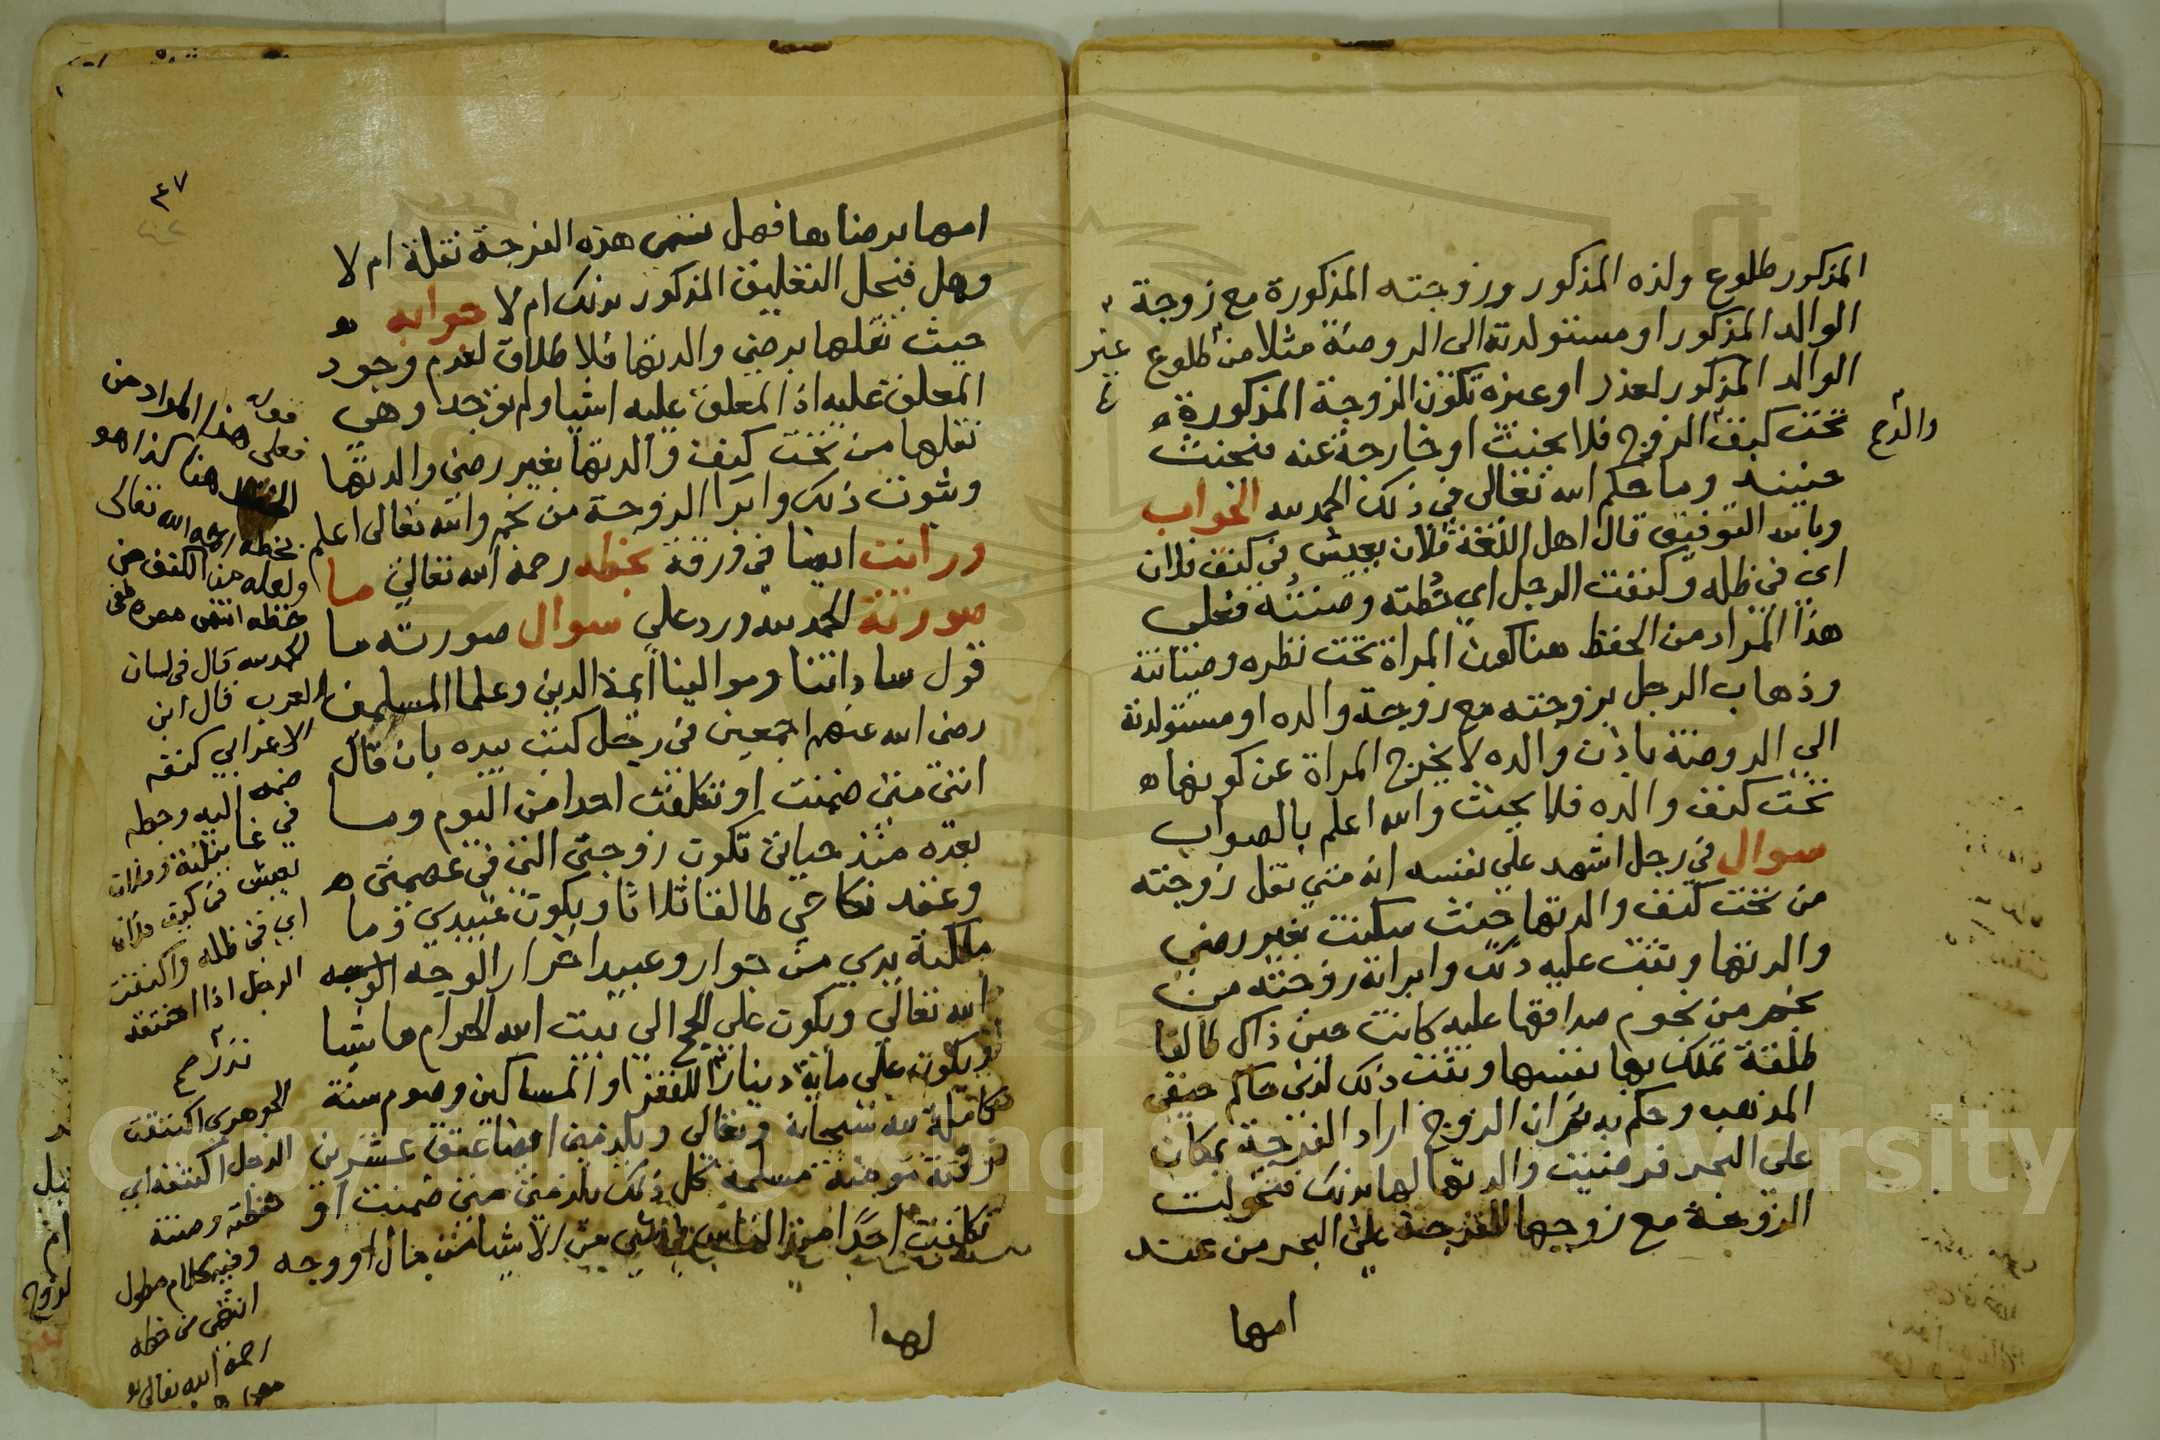 المذكور طلوع ولده المذكور وزوجته المذكورة مع زوجة
الوالد المذكور او مستولدته الى الروضة مثلا من طلوع
غير
الوالد المذكور لعذر او غيره تكون الزوجة المذكورة
تحت كنف الزوج فلا يحنث او خارجة عنه فيحنث
والده
حينئذ وما حكم الله تعالى في ذلك الحمد لله الجواب
وبالله التوفيق قال اهل اللغة فلان يعيش في كنف فلان
اي في ظله وكنفت الرجل اي حطته وصنته فعلى
هذا المراد من الحفظ هنا كون المراة تحت نظره وصيانته
وذهاب الرجل بزوجته مع زوجة والده او مستولدته
الى الروضة باذن والده لا يخرج المراة عن كونها
تحت كنف والده فلا يحنث والله اعلم بالصواب
سوال في رجل اشهد على نفسه انه متى نقل زوجته
من تحت كنف والدتها حيث سكنت بغير رضى
والدتها وثبت عليه ذلك وابراته زوجته من
نجم من نجوم صداقها عليه كانت حين ذاك طالقا
طلقة تملك بها نفسها وثبت ذلك لدى حاكم حنفي
المذهب وحكم به ثم ان الزوج اراد الفرجة بمكان
على البحر فرضيت والدتها لها بذلك فتحولت
الزوجة مع زوجها للفرجة على البحر من عند
امها
٤٧
امها برضاها فهل تسمى هذه الفرجة نقلة ام لا
وهل فينحل التعليق المذكور بذلك ام لا جوابه
حيث نقلها برضى والدتها فلا طلاق لعدم وجود
المعلق عليه اذ المعلق عليه اشيا ولم توجد وهي
نقلها من تحت كنف والدتها بغير رضى والدتها
وثبوت ذلك وابرا الزوجة من نجم والله تعالى اعلم
ورايت ايضا في ورقة بخطه رحمه الله تعالى ما
صورته الحمد لله ورد علي سوال صورته ما
قول ساداتنا وموالينا ائمة الدين وعلما المسلمين
رضى الله عنهم اجمعين في رجل كتب بيده بان قال
انني متى ضمنت او تكلفت احدا من اليوم وما
بعده منذ حياتي تكون زوجتي التي في عصمتي
وعقد نكاحي طالقا ثلاثا ويكون عبيدي وما
ملكته يدي من جوار وعبيد احرار الوجه
الله تعالى ويكون علي الحج الى بيت الله الحرام ماشيا
ويكون علي ماية دينار للفقرا والمساكين وصوم سنة
كاملة لله سبحانه وتعالى ويلزمني ايضا عتق عشرين
رقبة مومنة مسلمة كل ذلك يلزمني متى ضمنت او
تكلفت احدا من الناس في شي من الاشيا من مال او وجه
لهذا
قوله
فعلى هذا المراد من
هنا كذا هو
بخطه رحمه الله تعالى
ولعله من الكنف من
حفظه انتهى
الحمد لله قال في لسان
العرب قال ابن
الاعرابي كنفه
ضمه اليه وجعله
في عياله وفلان
يعيش في كنف فلان
اي في ظله واكنفت
الرجل اذا اعنته
الجوهري اكتنفت
الرجل اكنفه اي
حفظته وصنته
وفيه كلام مطول
انتهى من خطه
رحمه الله تعالى
Copyright © King Saud University